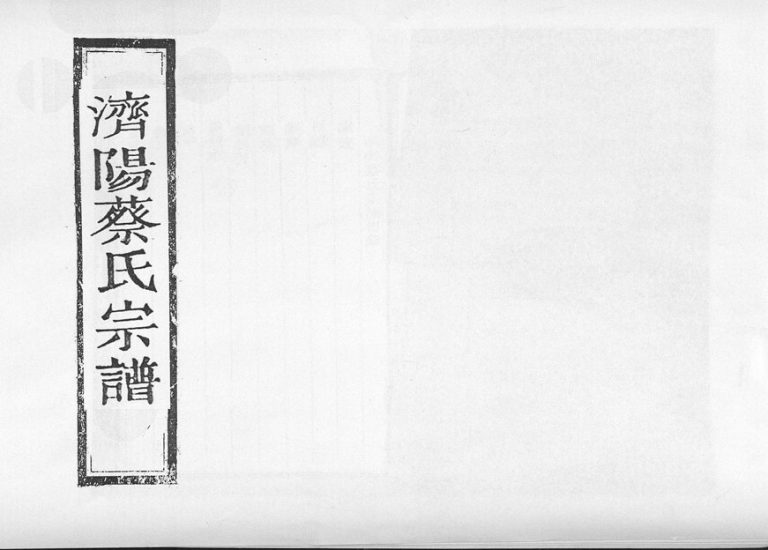 濟陽蔡氏宗譜